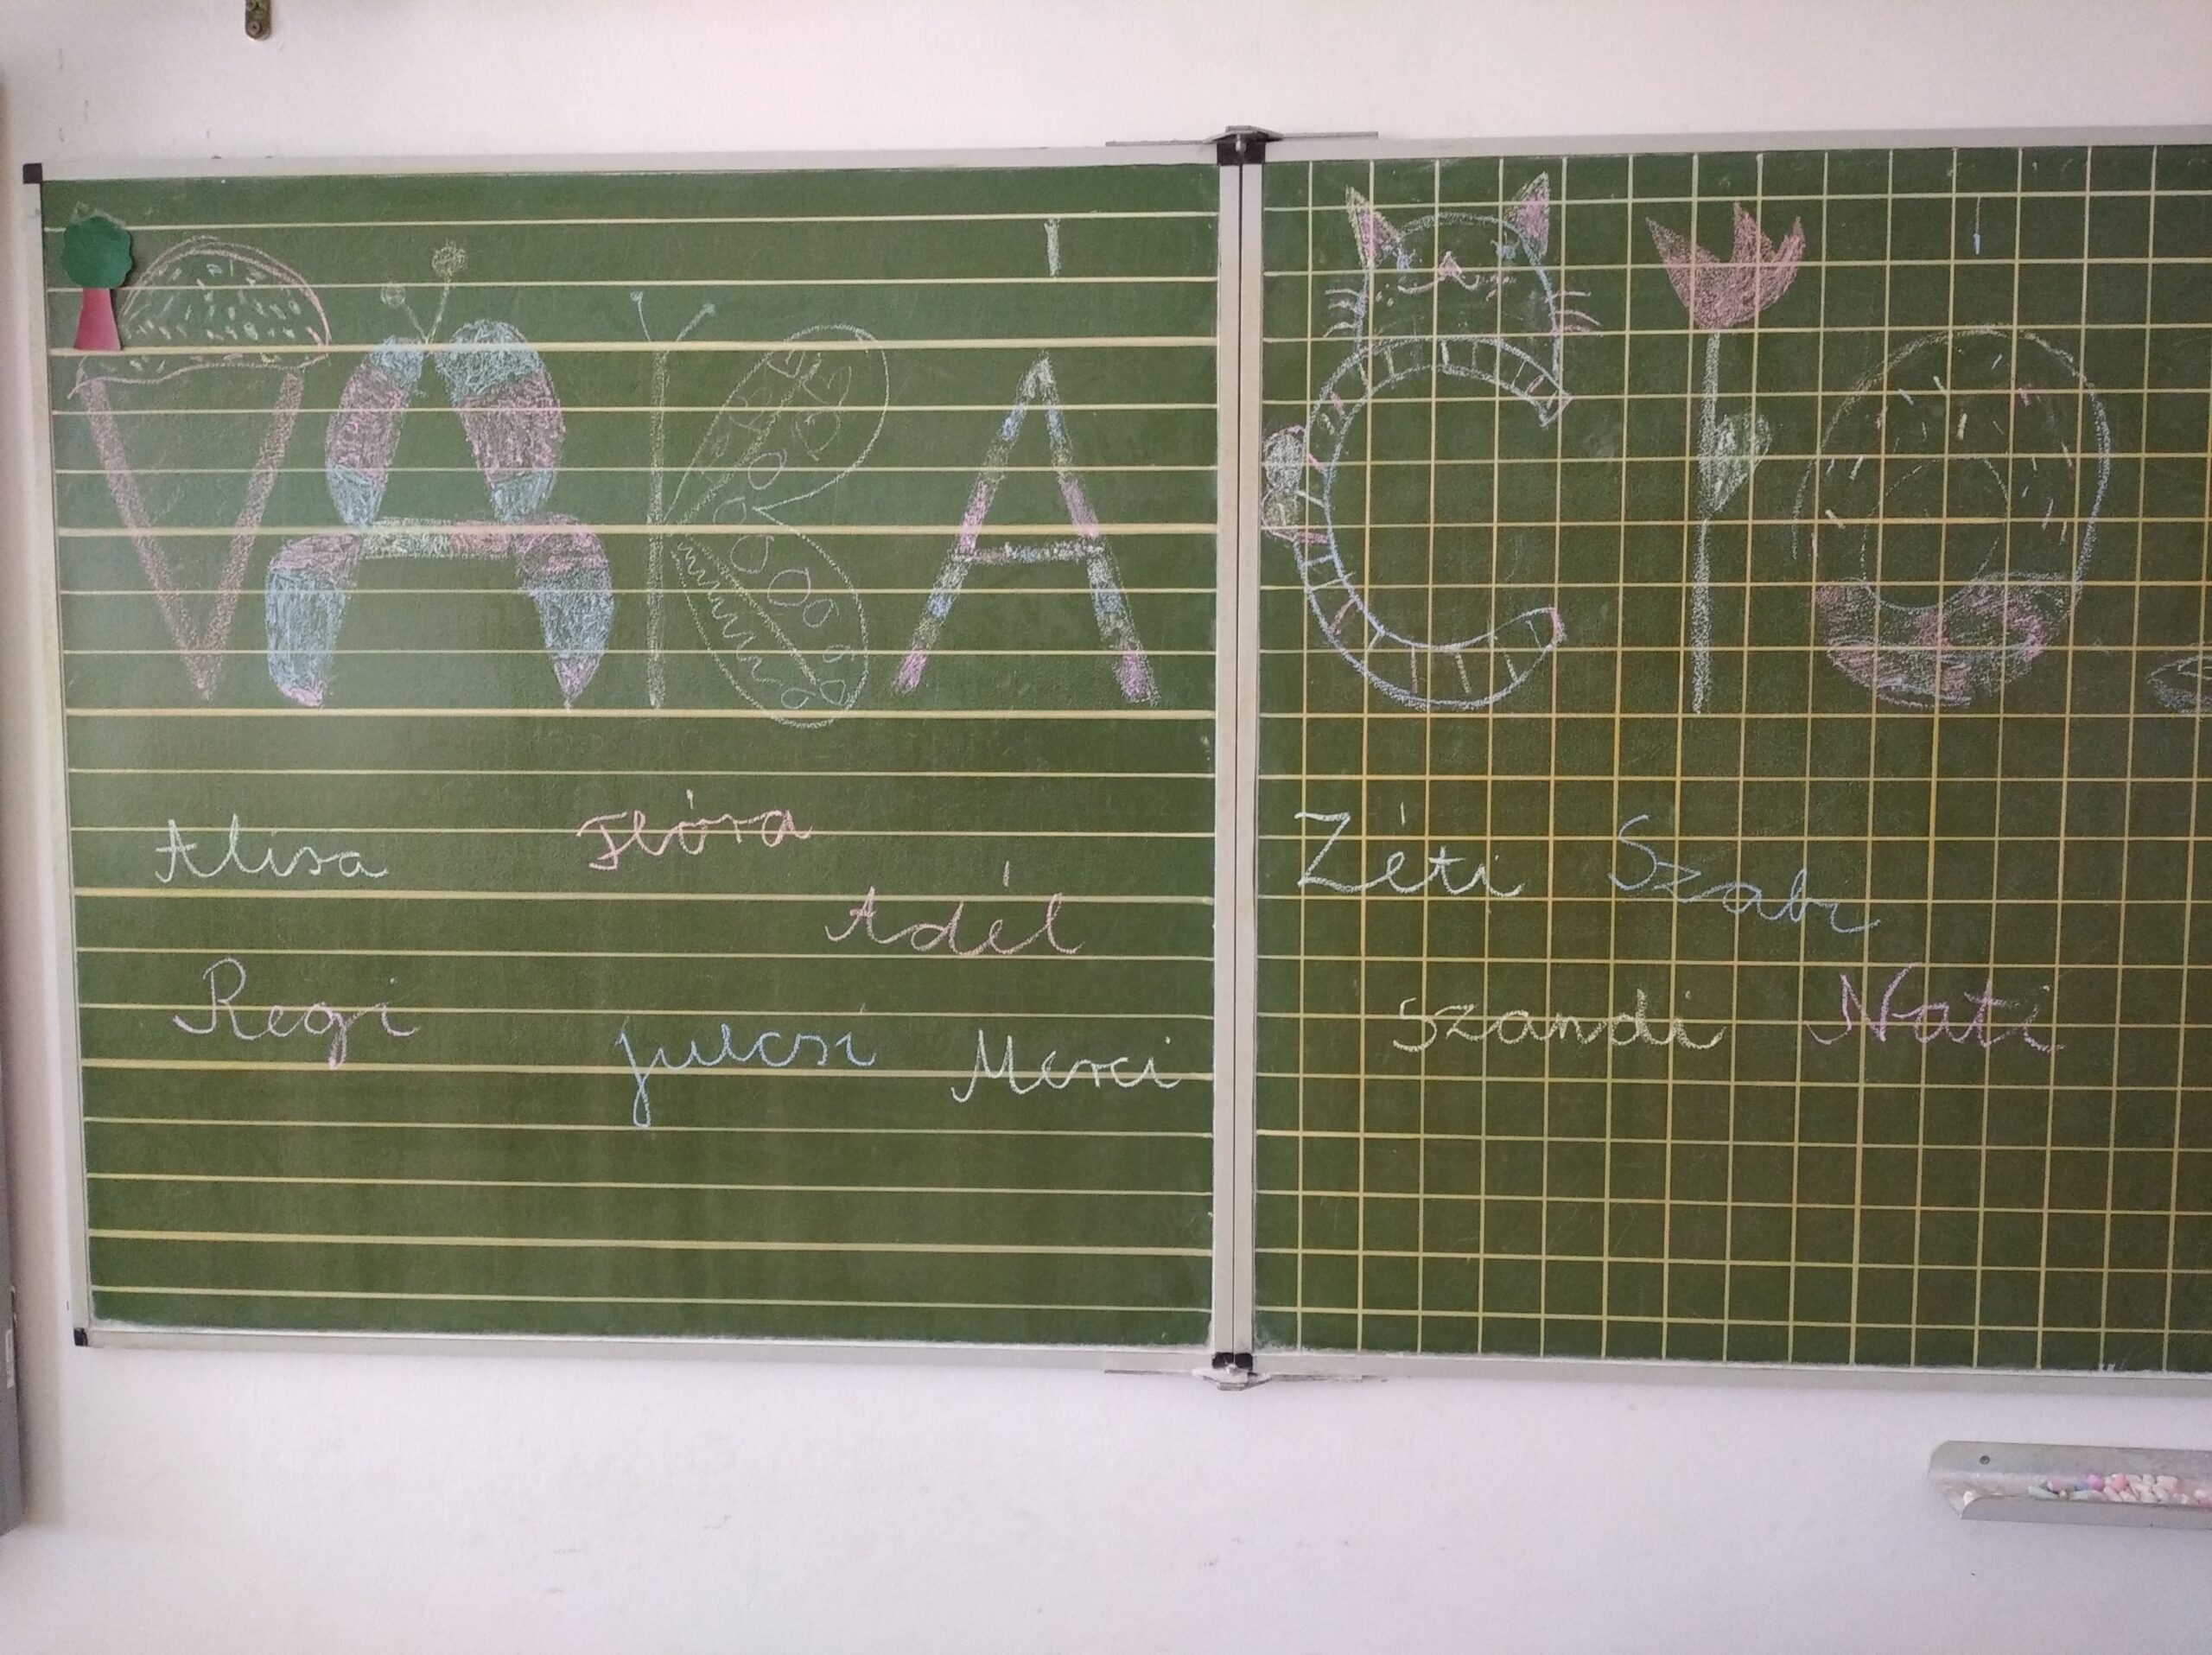 VAKÁCIÓ
Alisa Flóra Zéti Szabi
Adél
Regi Julcsi Merci Szandi Nati